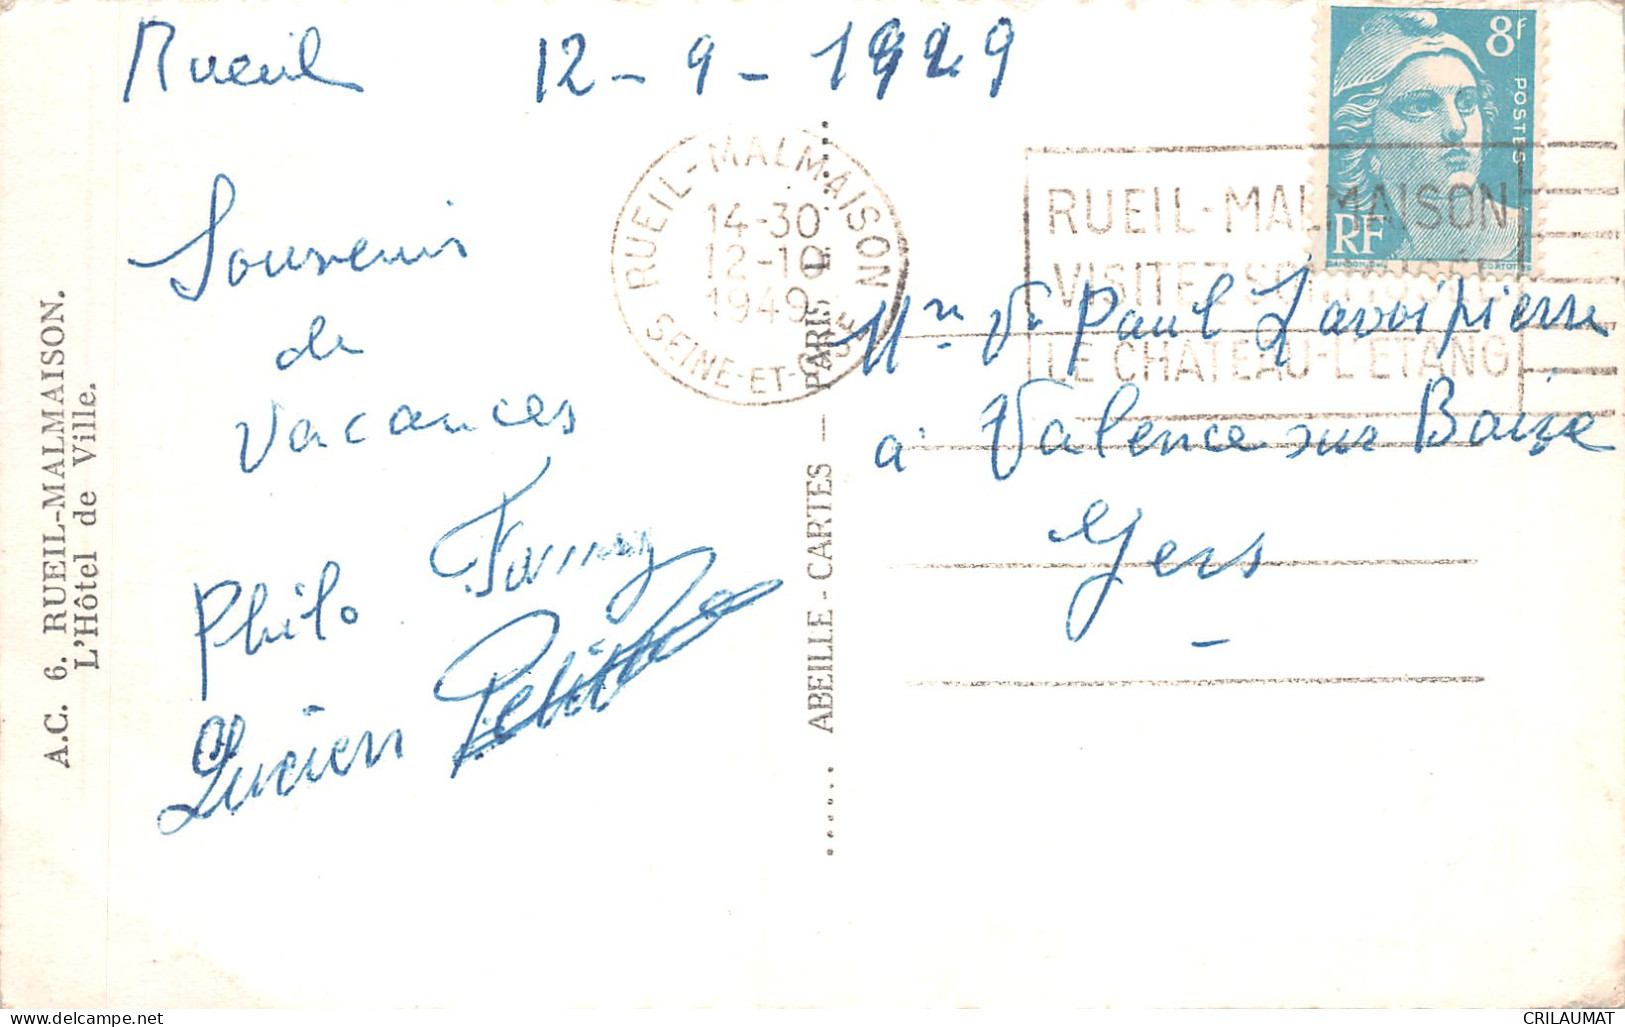 Rueil 12 - 9 - 1949
Souvenir
de
Vacances
Philo Fanny
Lucien
A.C. 6. RUEIL-MALMAISON.
L'Hôtel de Ville.
ABEILLE - CARTES — PARIS
RUEIL-MALMAISON
14-30
12-10
1949
SEINE-ET-OISE
RUEIL-MALMAISON
VISITEZ SON MUSÉE
LE CHATEAU-L'ETANG
8F
POSTES
RF
GANDON
CORTOT
Paul Lavoipierre
à Valence sur Baïse
Gers
CRILAUMAT